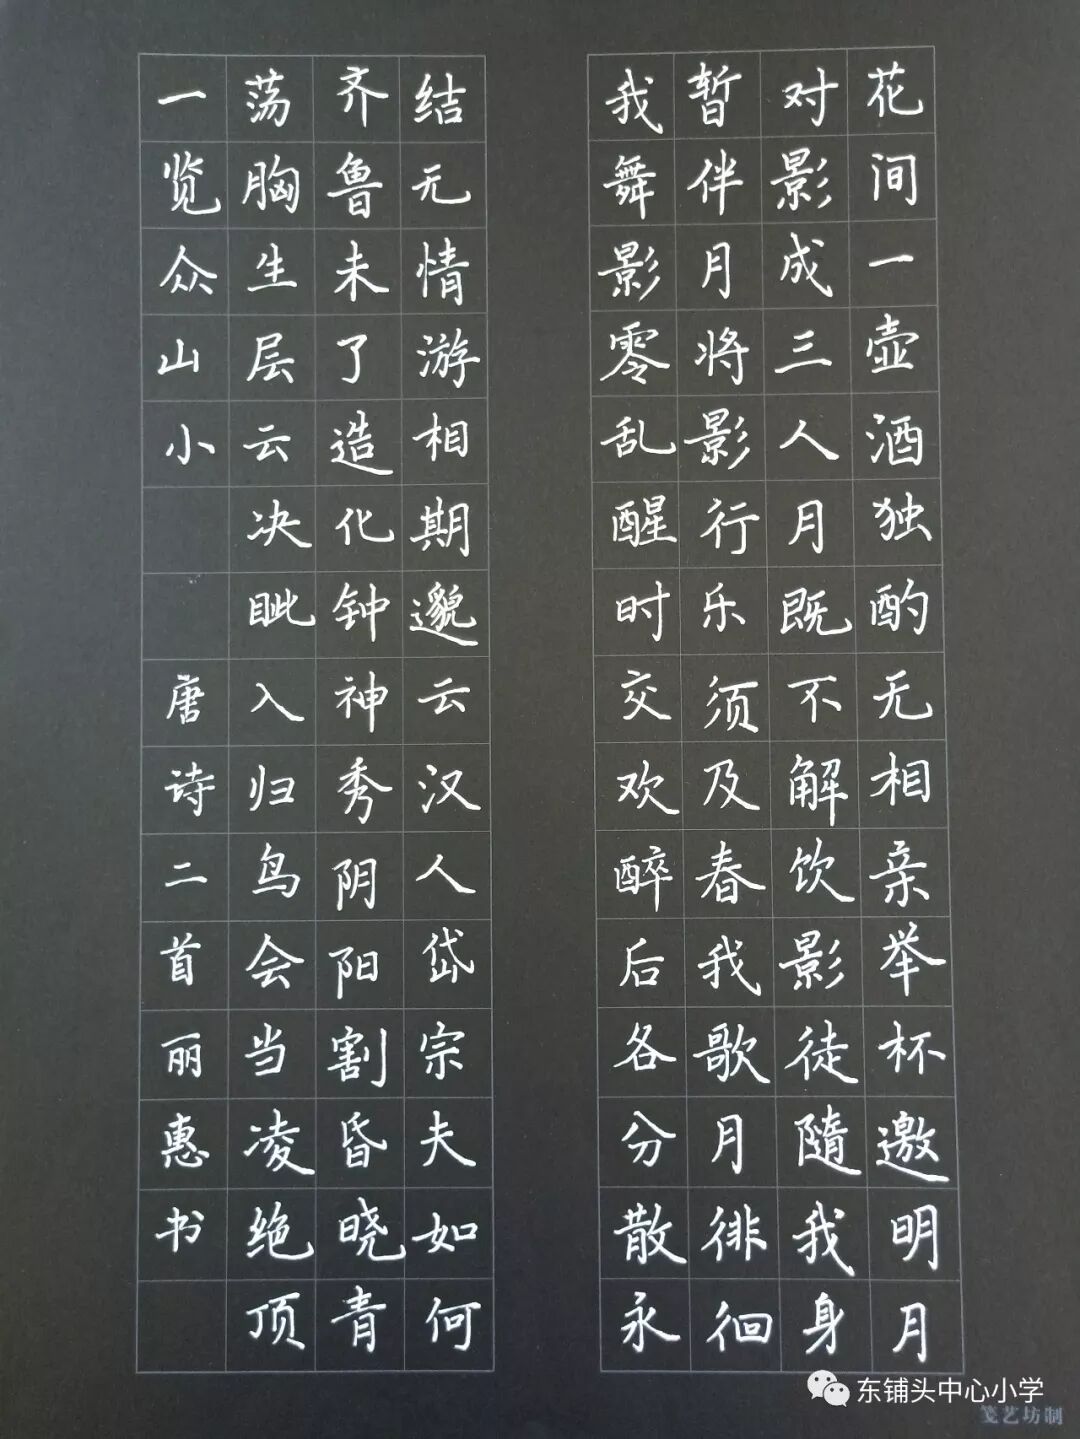 花间一壶酒独酌无相亲举杯邀明月
对影成三人月既不解饮影徒随我身
暂伴月将影行乐须及春我歌月徘徊
我舞影零乱醒时交欢醉后各分散永
结无情游相期邈云汉人岱宗夫如何
齐鲁未了造化钟神秀阴阳割昏晓青
荡胸生层云决眦入归鸟会当凌绝顶
一览众山小 唐诗二首丽惠书
东铺头中心小学
笺艺坊制